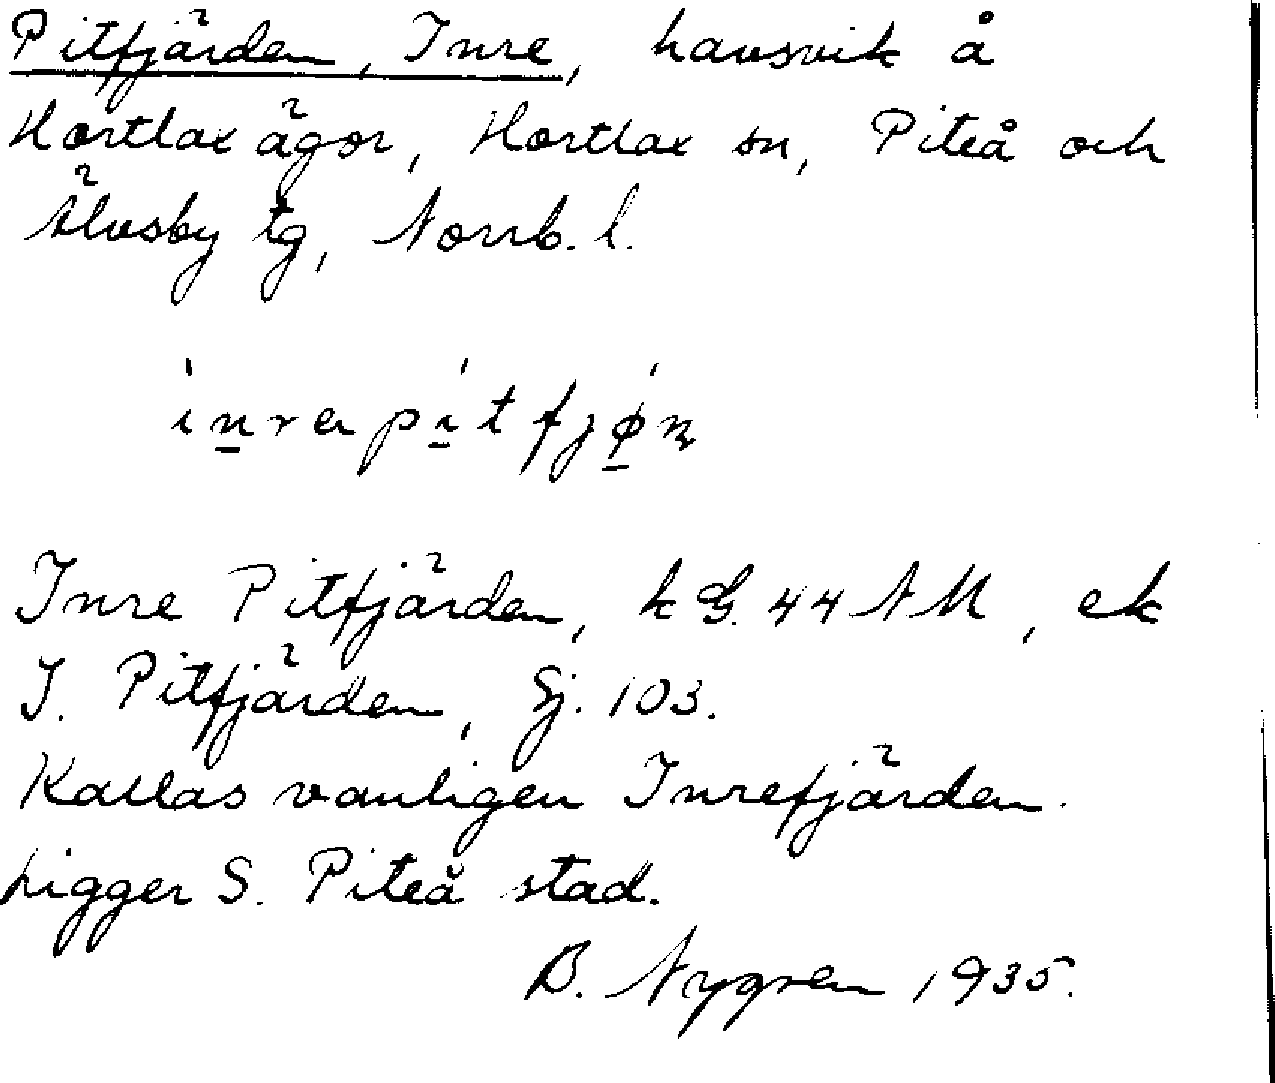 Pitfjärden, Inre, havsvik å
Hortlax ägor, Hortlax sn, Piteå och
Älvsby tg, Norrb. l.
Inre Pitfjärden, k G. 44 NM, ek
I. Pitfjärden, Sj. 103.
Kallas vanligen Inrefjärden.
Ligger S. Piteå stad.
B. Nygren 1935.